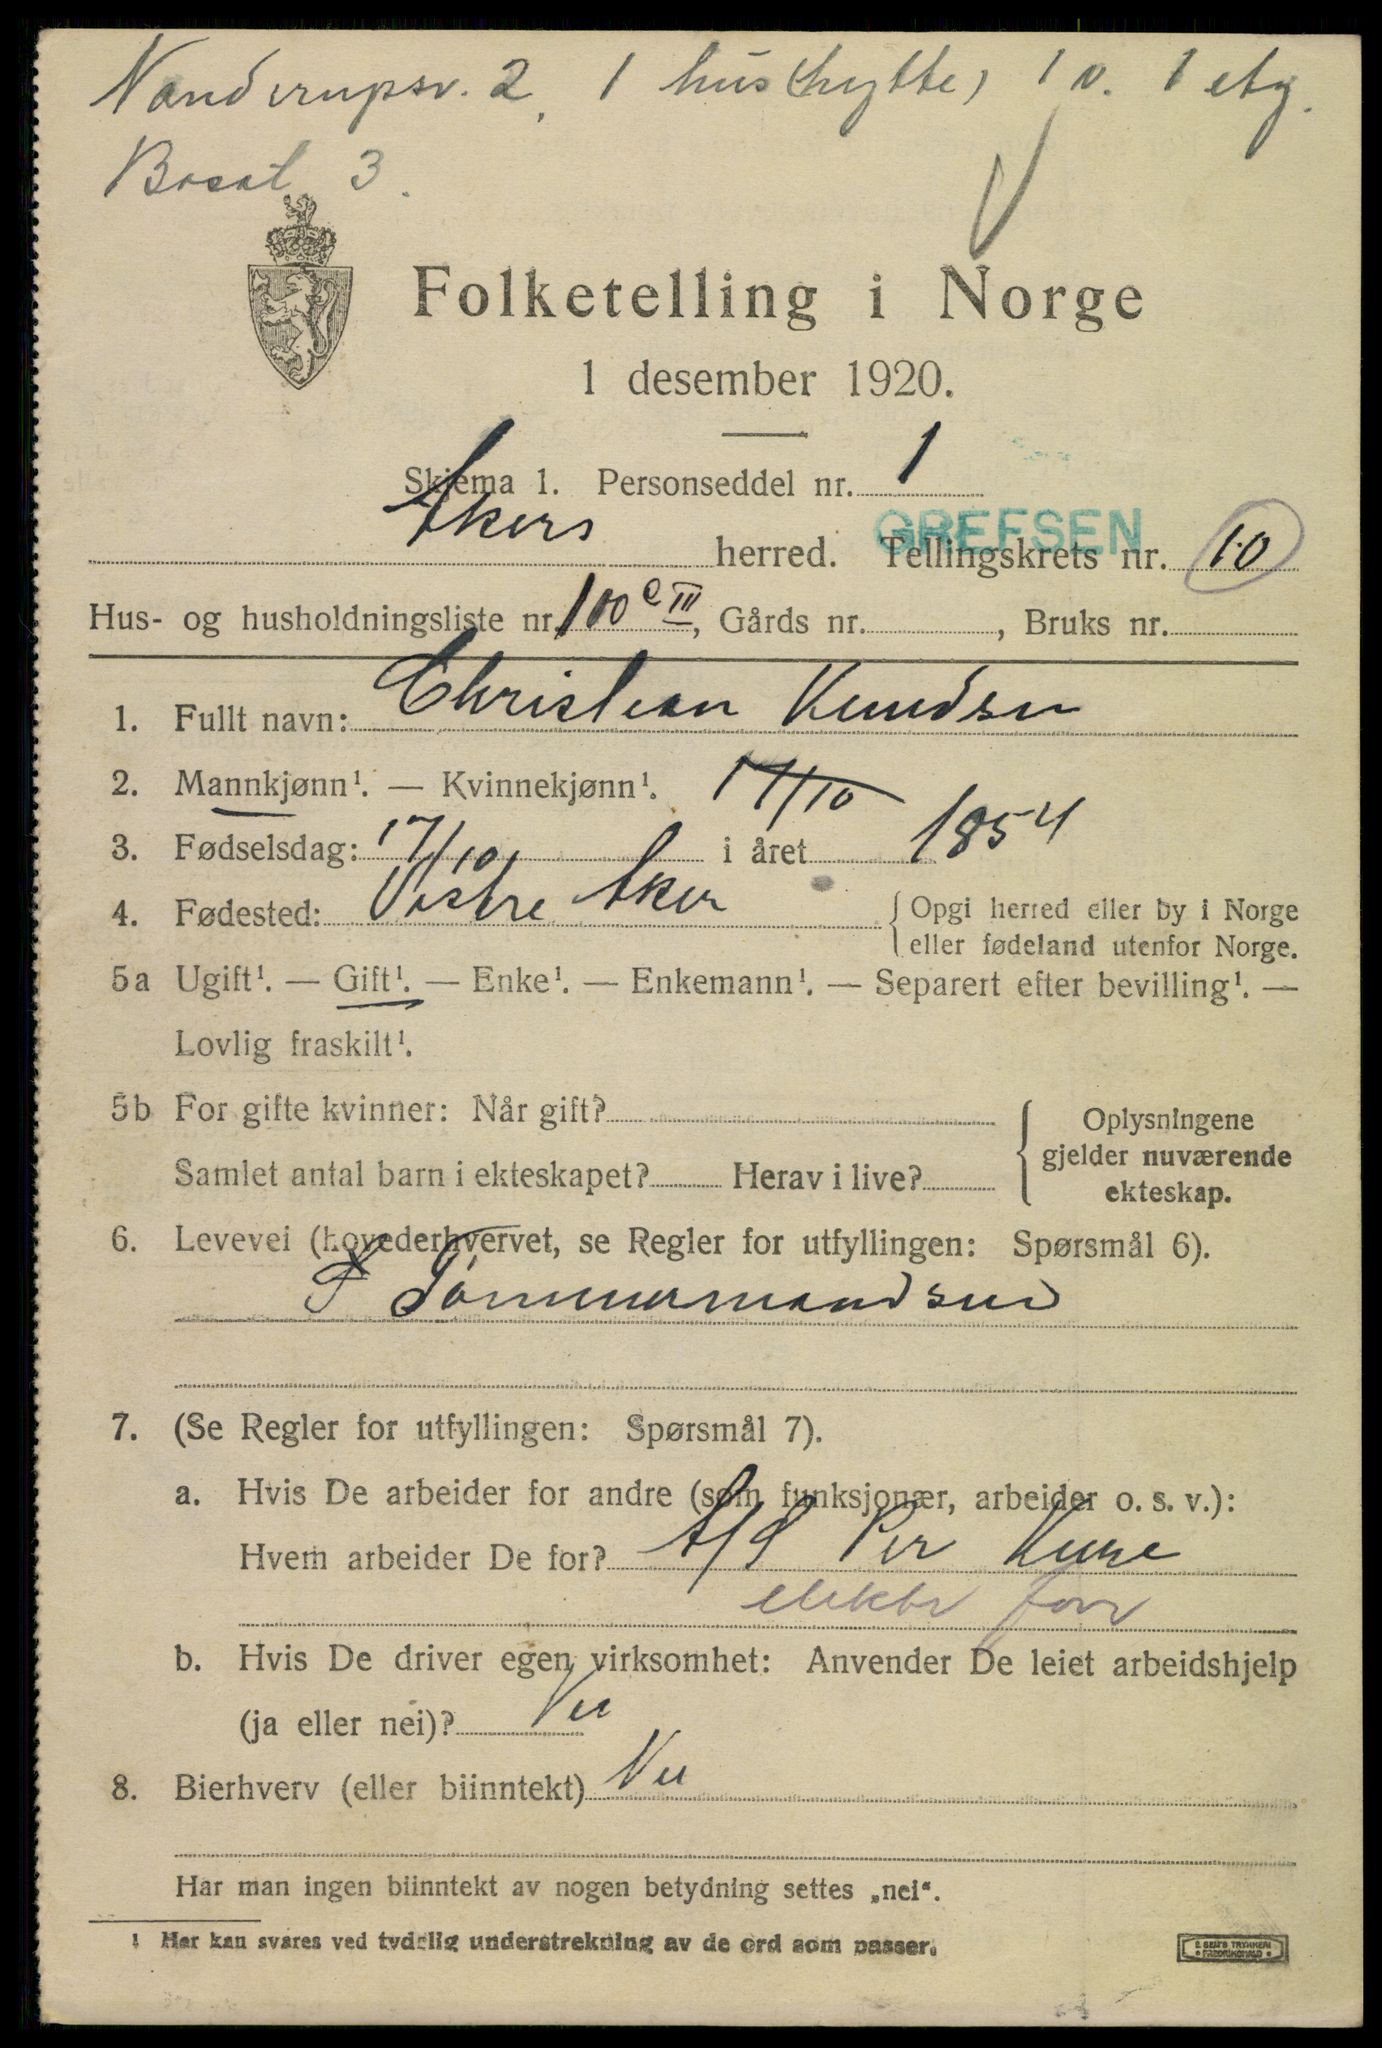 Nanderupsv. 2, 1 hus (hytte) 1 v. 1 etg.
Bosat 3.
Folketelling i Norge
1 desember 1920.
Skjema 1. Personseddel nr. 1
GREFSEN
Akers herred. Tellingskrets nr. 10
Hus- og husholdningsliste nr. 100 e III, Gårds nr. , Bruks nr.
1. Fullt navn: Christian Knudsen
2. Mannkjønn¹. — Kvinnekjønn¹. 17/10
3. Fødselsdag: 17/10 i året 1854
4. Fødested: Vestre Aker { Opgi herred eller by i Norge
eller fødeland utenfor Norge.
5a Ugift¹. — Gift¹. — Enke¹. — Enkemann¹. — Separert efter bevilling¹. —
Lovlig fraskilt¹.
5b For gifte kvinner: Når gift? { Oplysningene
gjelder nuværende
ekteskap.
Samlet antal barn i ekteskapet? Herav i live?
6. Levevei (hovederhvervet, se Regler for utfyllingen: Spørsmål 6).
Tømmermandsud
7. (Se Regler for utfyllingen: Spørsmål 7).
a. Hvis De arbeider for andre (som funksjonær, arbeider o. s. v.):
Hvem arbeider De for? A/S Per Kure
elektr forr
b. Hvis De driver egen virksomhet: Anvender De leiet arbeidshjelp
(ja eller nei)? Nei
8. Bierhverv (eller biinntekt) Nei
Har man ingen biinntekt av nogen betydning settes „nei“.
1 Her kan svares ved tydelig understrekning av de ord som passer.
E. SEM'S TRYKKERI
FREDRIKSHALD